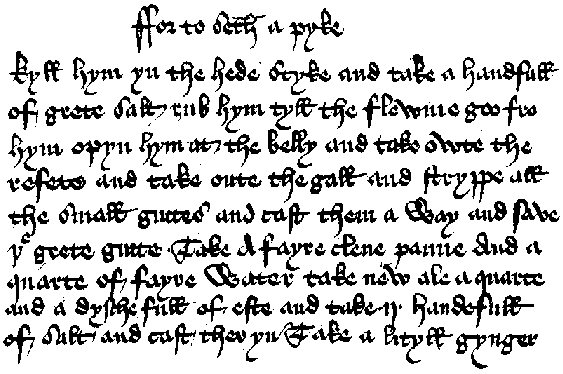 ffor to seth a pyke
kyll hym yn the hede Styke and take a handfull
of grete salt rub hym tyll the flowme goo fro
hym opyn hym at the belly and take owte the
refete and take oute the gall and stryppe all
the small guttes and cast them a Way and save
þe grete gutte Take A fayre clene panne And a
quarte of fayre Water take new ale a quarte
and a dysche full of este and take ij handefull
of salt and cast ther yn Take a lityll gynger